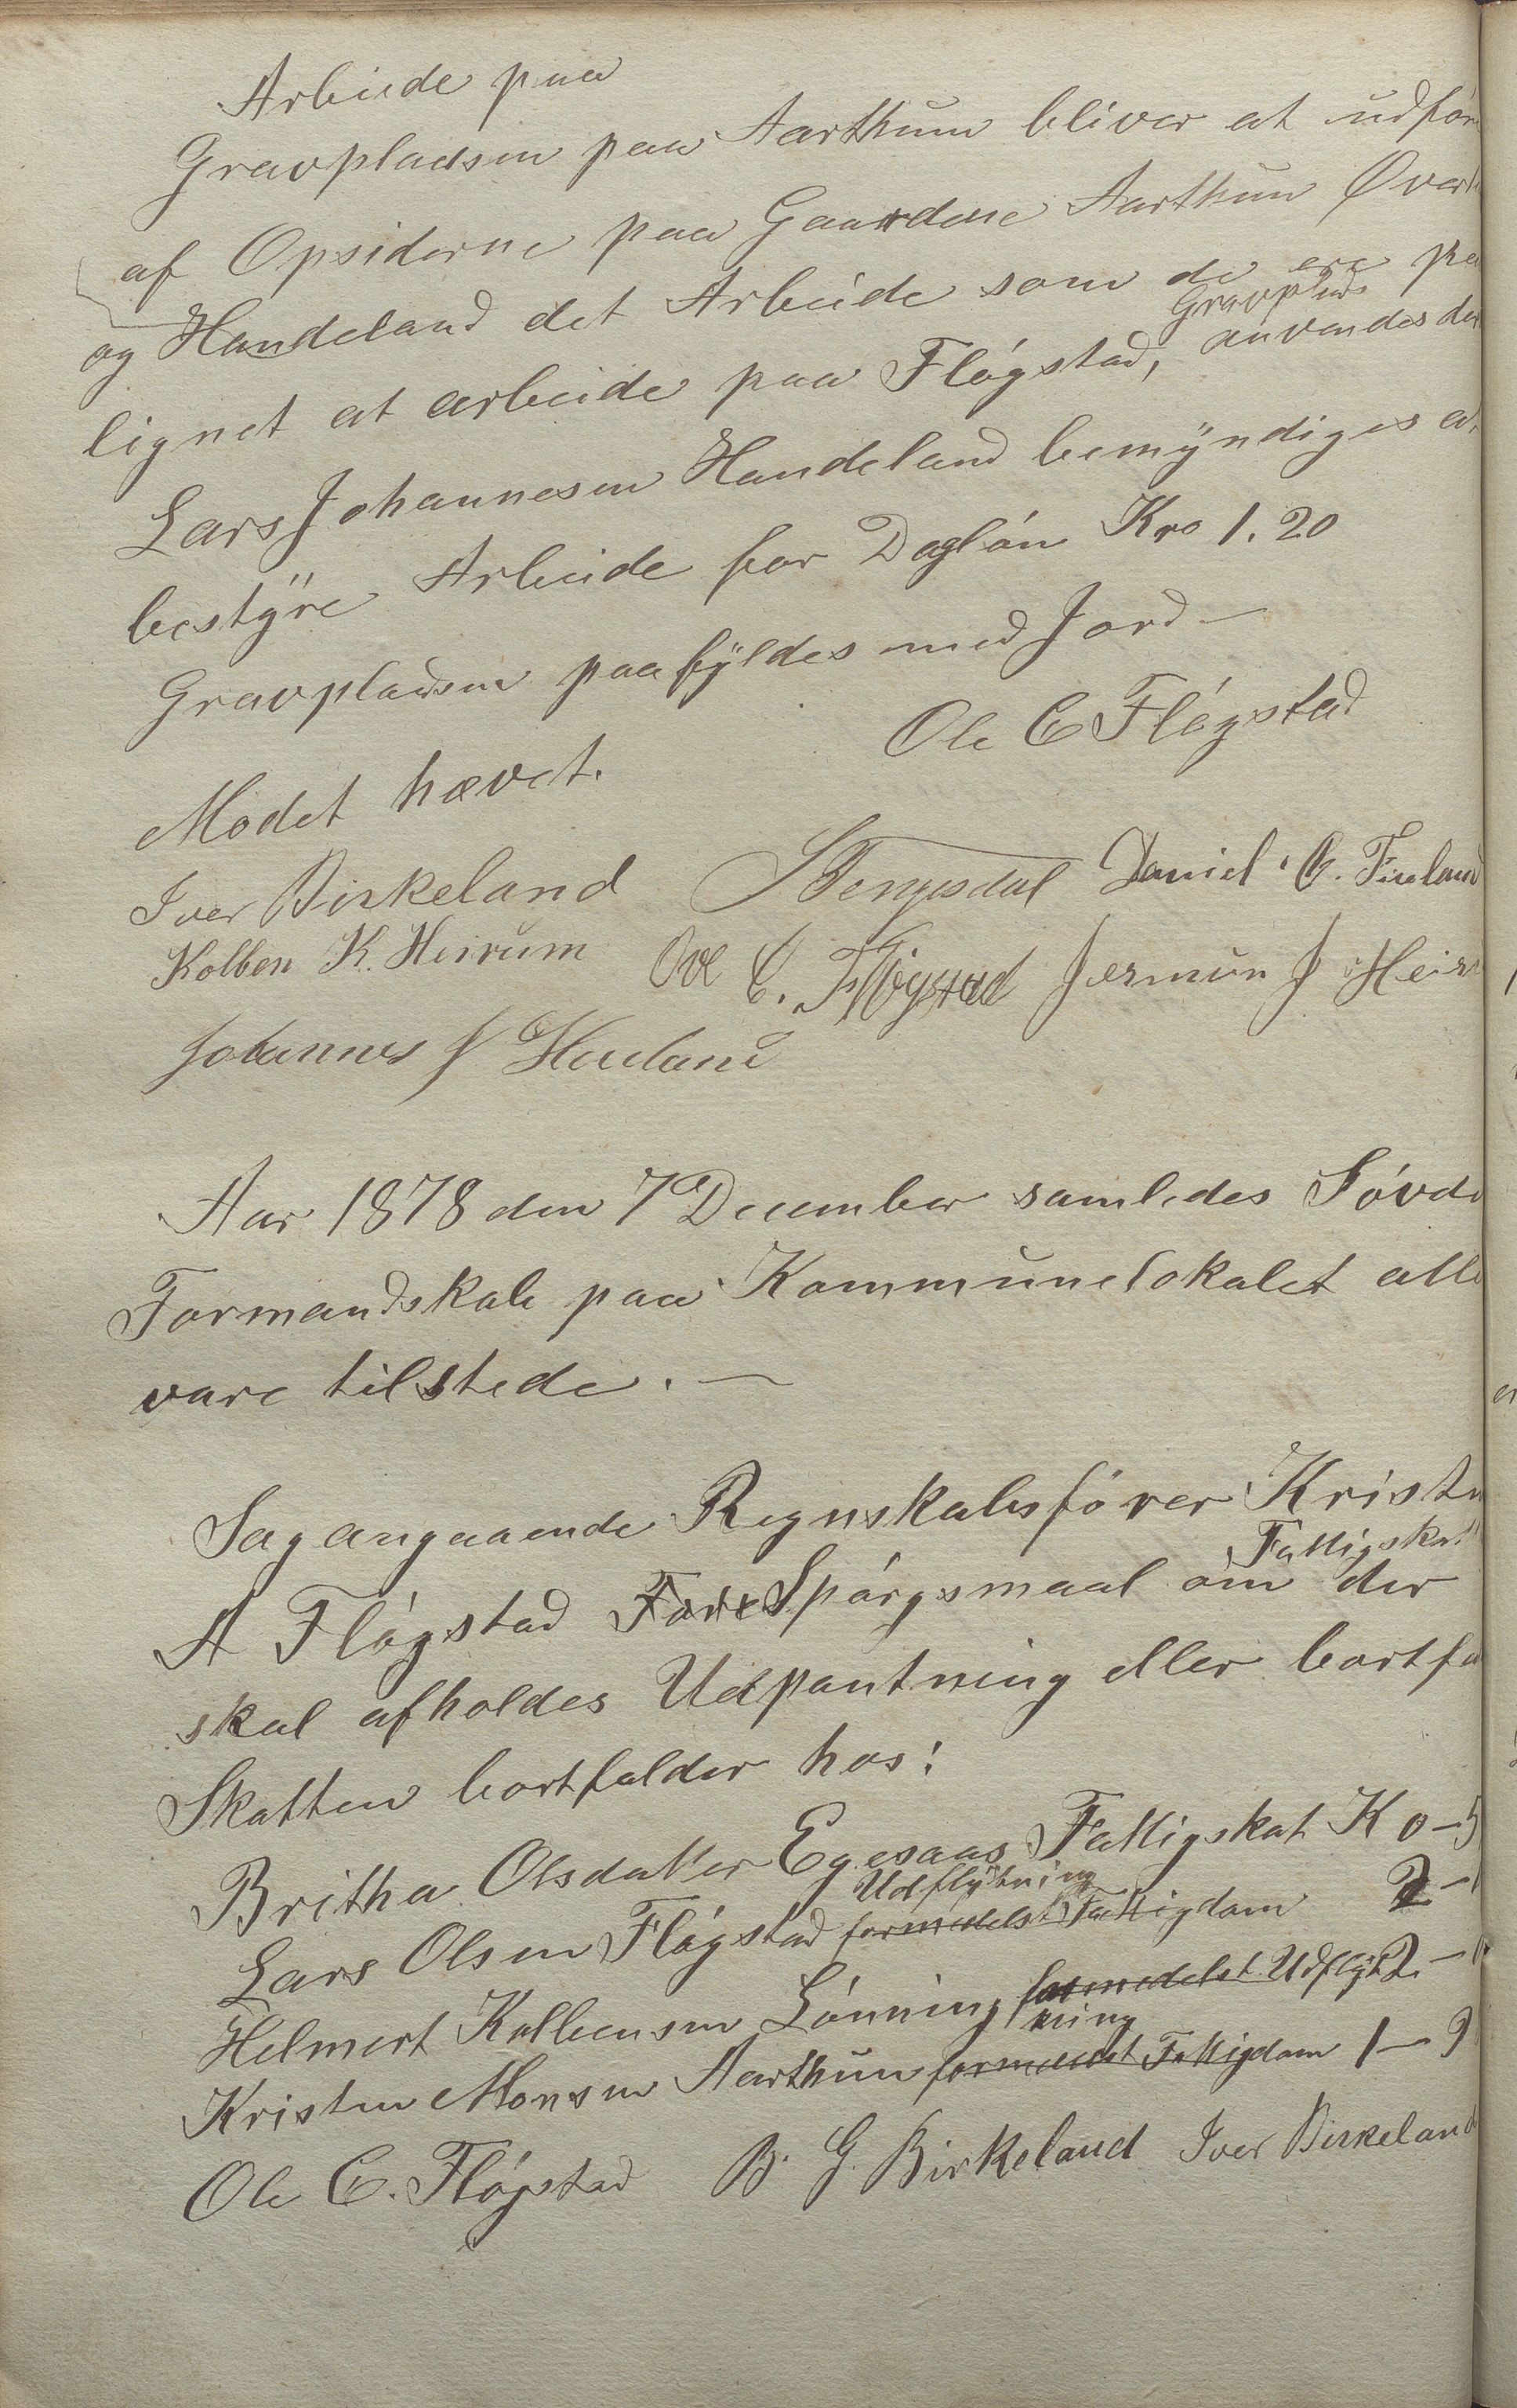 Arbeide paa
Gravpladsen paa Aarthun bliver at udför
af Opsiderne paa Gaardene Aarthun Øver
og Handeland det Arbeide som de ere paa
lignet at arbeide paa Flögstad, Gravplads anvendes der
Lars Johannesen Handeland bemÿndiges a
bestÿre Arbeide for Daglön Kro 1.20
Gravpladsen paafÿldes med Jord —
Ole C Flögstad
Mödet hævet.
Iver Birkeland S Tengesdal Daniel O. Fineland
Kolben K. Heirum Ole C. Flögstad Jermun J Heir
Johannes J
Aar 1878 den 7 December samledes Sövde
Formandskab paa Kommunelokalet alle
vare tilstede. —
Sag angaaende Regnskabsförer Kristen
A Flögstad Spörgsmaal om Fattigskat der
skal afholdes Udpantning eller bortfa
Skatten bortfalder hos:
Britha Olsdatter Egesaas Fattigskat K 0-5
Udflÿtning
Lars Olsen Flögstad formedelst Fattigdom 2-
Helmert Kolbensen Lönning formedelst Udflÿt 2-
ning
Kristen Monsen Aarthun formedelst Fattigdom 1-
Ole C. Flögstad B. G. Birkeland Iver Birkeland